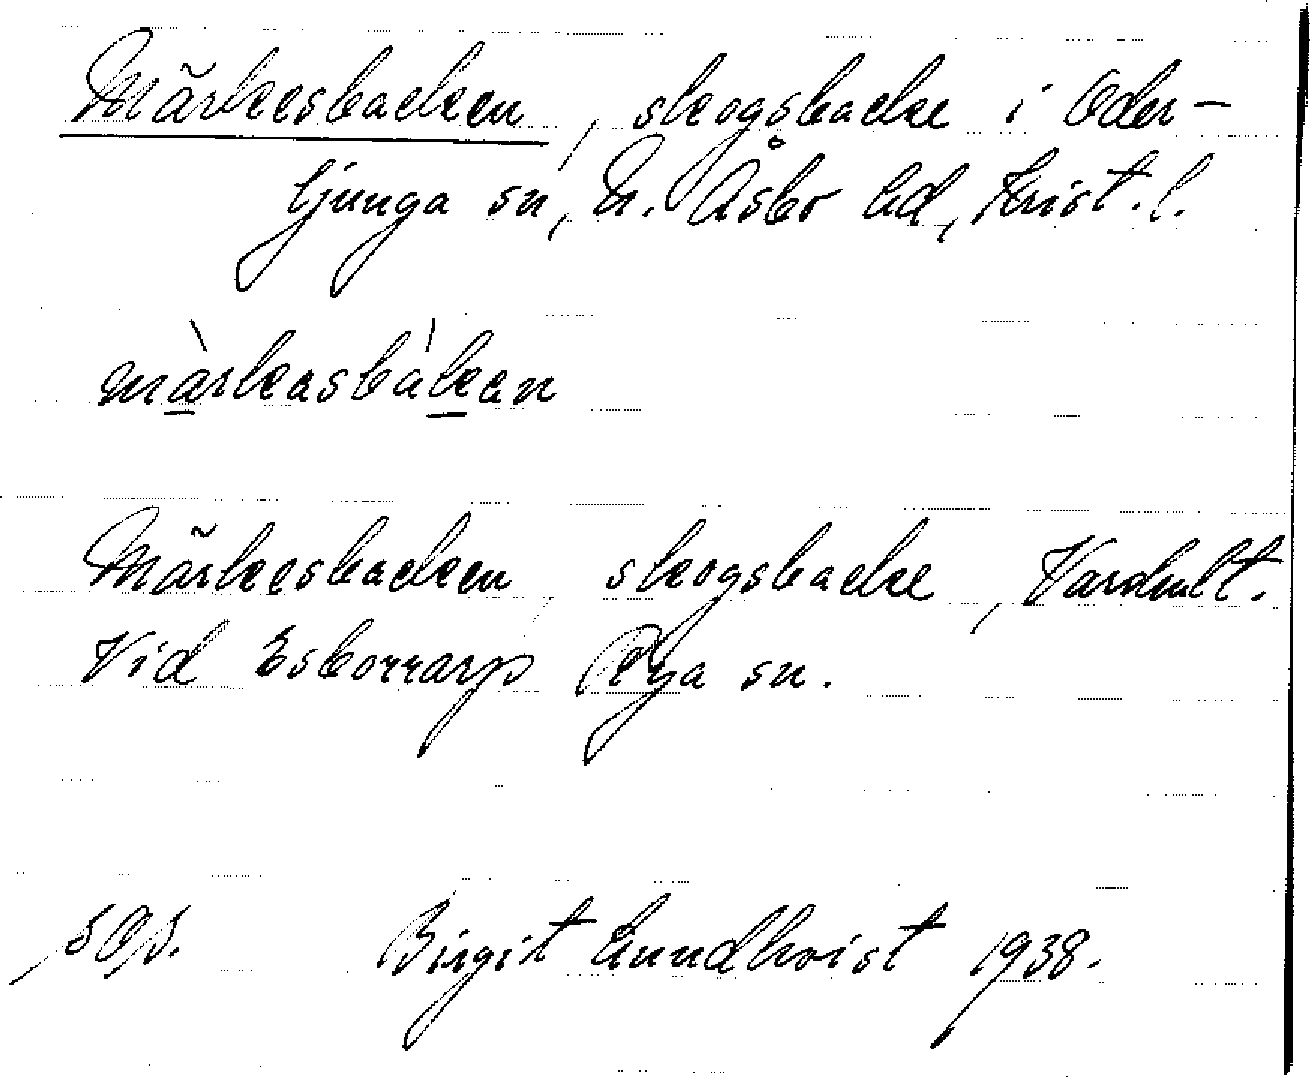 Märkesbacken, skogsbacke i Oder-
ljunga sn, N. Åsbo hd, Krist. l.
märkasbakan
Märkesbacken, skogsbacke, Vardhult.
Vid Esborrarp Rya sn.
Birgit Lundkvist 1938.